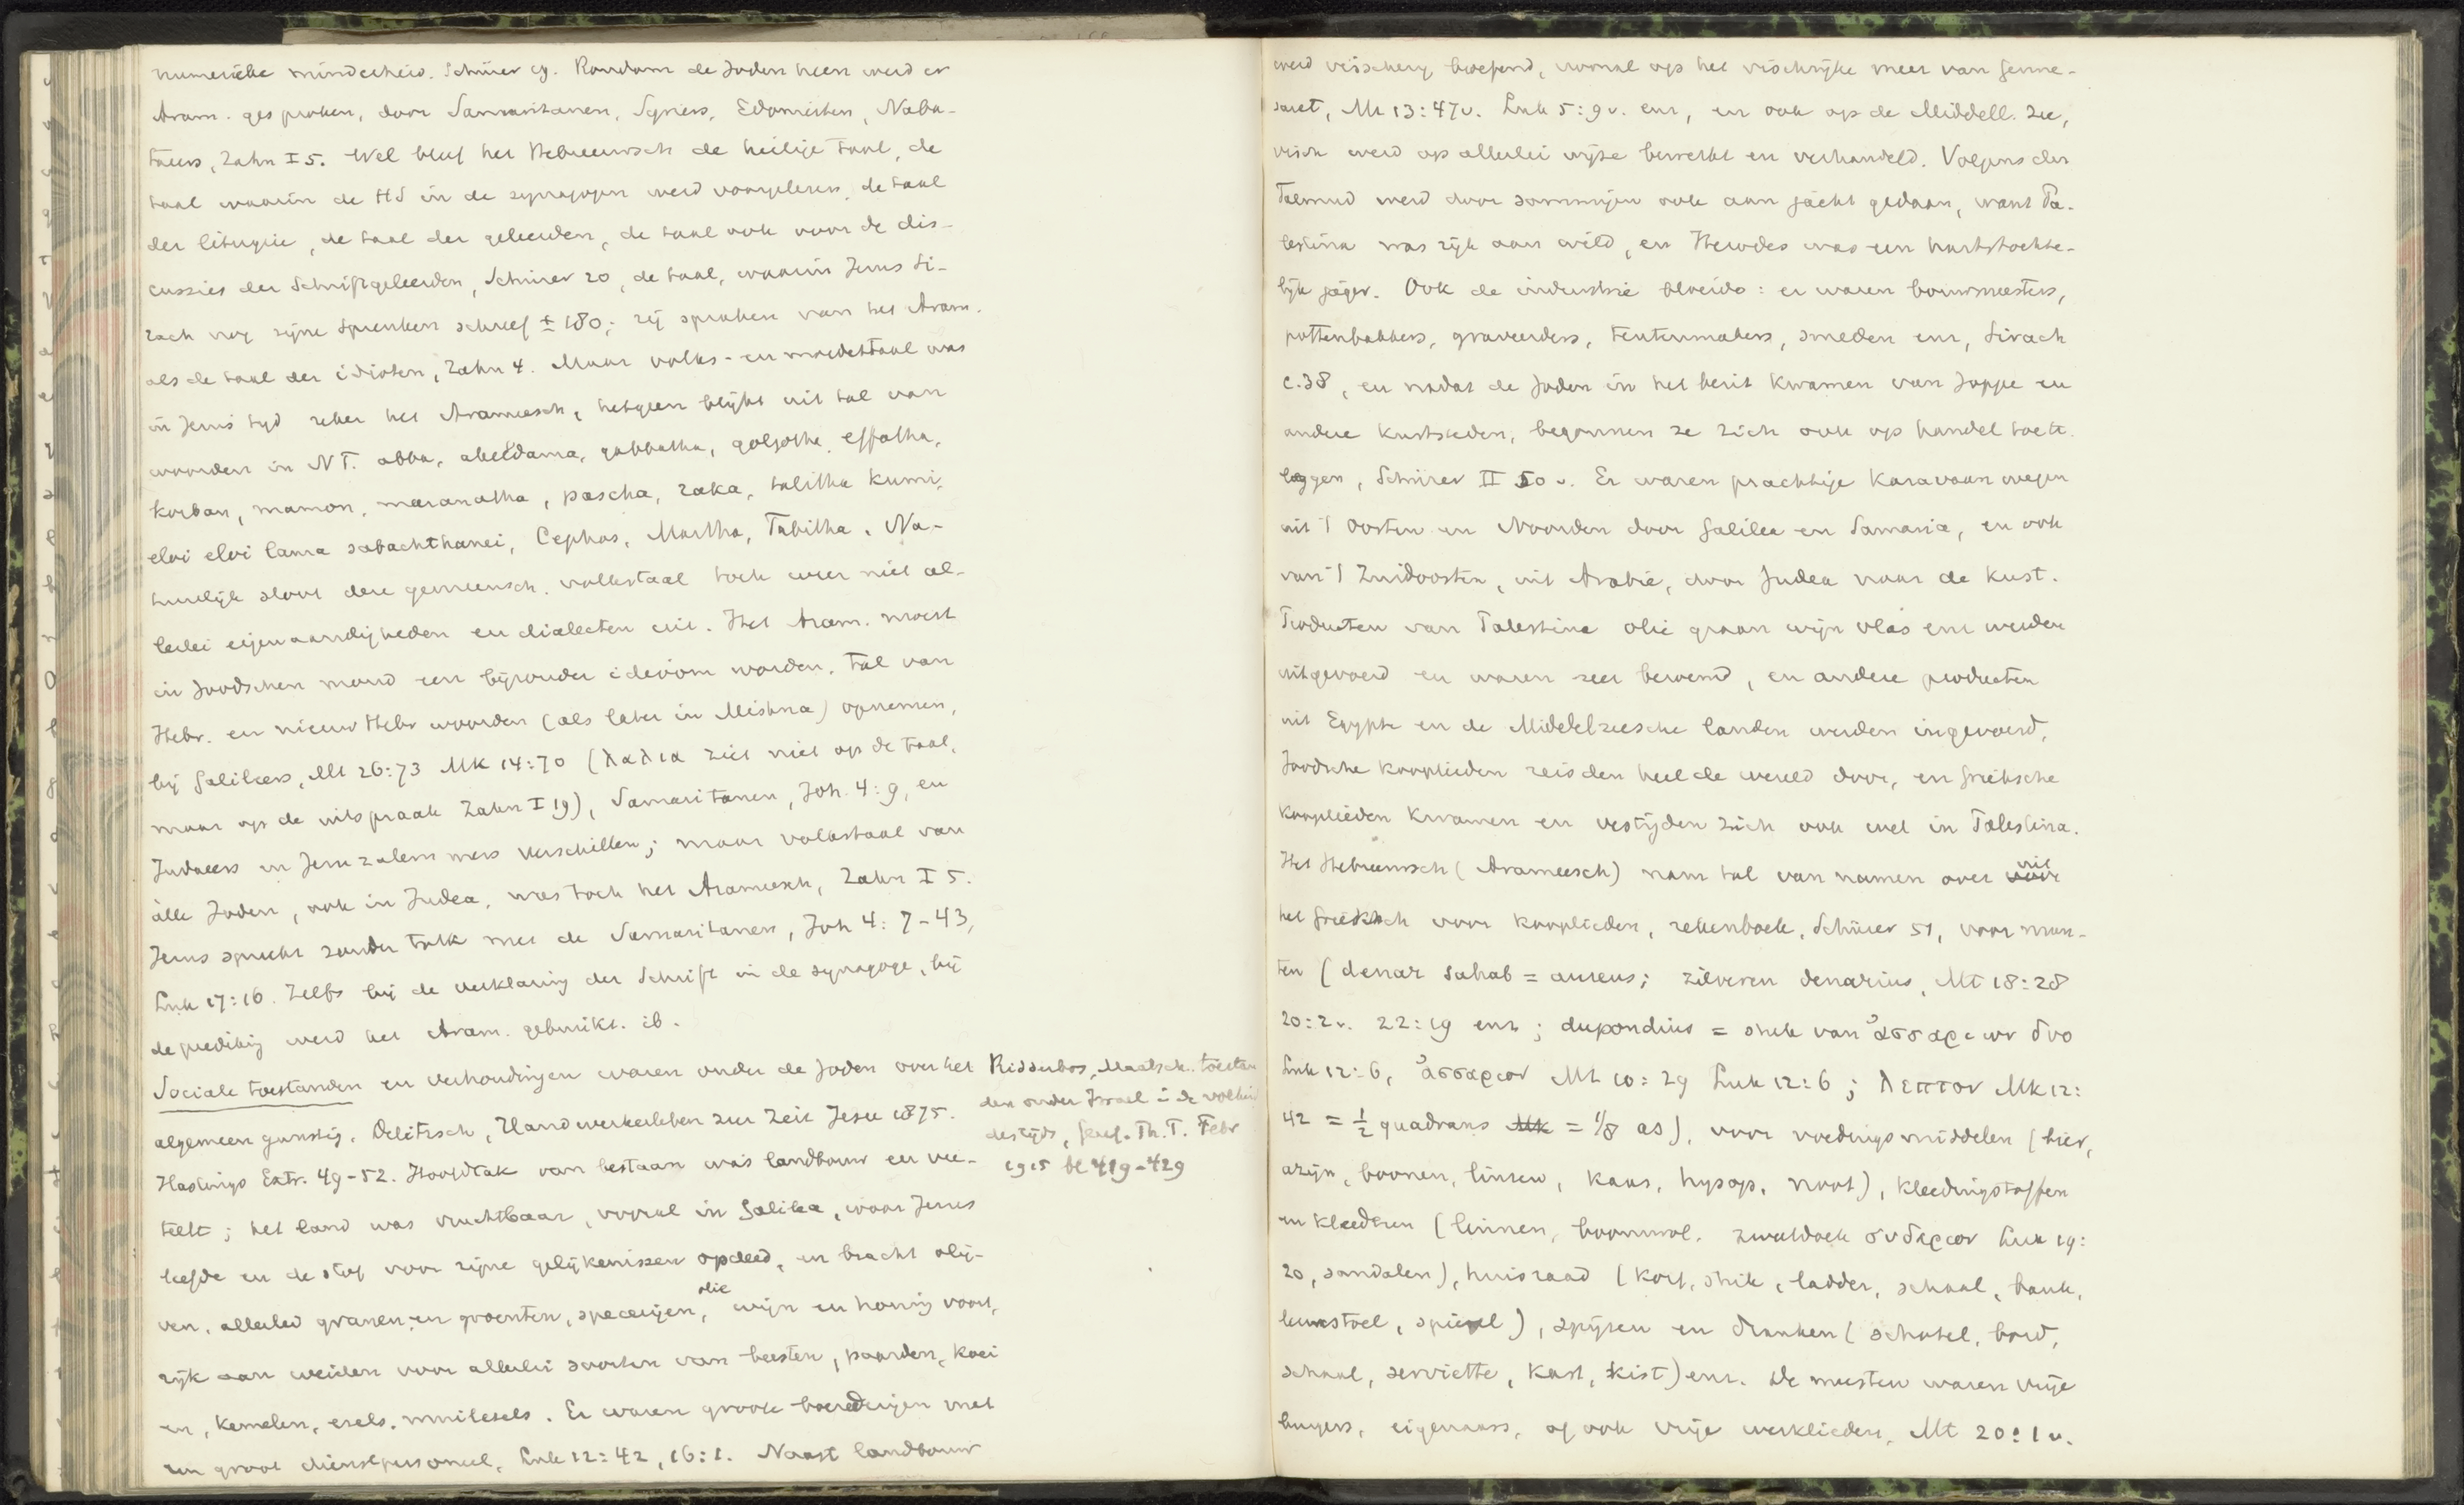 numerieke minderheid. Schürer 19. Rondom de Joden heen werd er
Aram. gesproken, door Samaritanen, Syriers, Edomieten, Naba-
taeers, Zahn I 5. Wel bleef het Hebreeuwsch de heilige taal, de
taal waarin de HS in de synagogen werd voorgelezen, de taal
der liturgie, de taal der geleerden, de taal ook voor de dis-
cussies der Schriftgeleerden, Schürer 20, de taal, waarin Jezus Si-
rach nog zijne Spreuken schreef ± 180; zij spraken van het Aram.
als de taal der idioten, Zahn 4. Maar volks- en moedertaal was
in Jezus' tijd zeker het Arameesch, hetgeen blijkt uit tal van
woorden in N T. abba, akeldama, gabbatha, golgotha, effatha,
korban, mamon, maranatha, pascha, raka, talitha kumi,
eloi eloi lama sabachthanei, Cephas, Martha, Tabitha. Na-
tuurlijk sloot deze gemeensch. volkstaal toch weer niet al-
lerlei eigenaardigheden en dialecten uit. Het Aram. moest
in Joodschen mond een bijzonder idioom worden, tal van
Hebr. en nieuw Hebr woorden (als later in Mishna) opnemen,
bij Galileers, Mt 26:73 Mk 14:70 (λαλια ziet niet op de taal,
maar op de uitspraak Zahn I 19), Samaritanen, Joh. 4:9, en
Judaeers in Jeruzalem weer verschillen; maar volkstaal van
alle Joden, ook in Judea, was toch het Arameesch, Zahn I 5.
Jezus spreekt zonder tolk met de Samaritanen, Joh 4:7-43,
Luk 17:16. Zelfs bij de verklaring der Schrift in de synagoge, bij
de prediking werd het Aram. gebruikt. ib.
Sociale toestanden en verhoudingen waren onder de Joden over het
algemeen gunstig. Delitzsch, Handwerkerleben zur Zeit Jesu 1875.
Hastings Extr. 49-52. Hoofdtak van bestaan was landbouw en vee-
teelt; het land was vruchtbaar, vooral in Galilea, waar Jezus
leefde en de stof voor zijne gelijkenissen opdeed, en bracht olij-
ven, allerlei granen en groenten, specerijen, olie wijn en honig voort,
rijk aan weiden voor allerlei soorten van beesten, paarden, koei
en, kemelen, ezels, muilezels. Er waren groote boerderijen met
een groot dienstpersoneel, Luk 12:42, 16:1. Naast landbouw
Ridderbos, Maatsch. toestan
den onder Israel i de
destijds, Geref. Th. T. Febr
1915 bl 419-429
werd visscherij beoefend, vooral op het vischrijke meer van Genne-
saret, Mt 13:47v. Luk 5:9v. enz, en ook op de Middell. zee,
visch werd op allerlei wijze bewerkt en verhandeld. Volgens den
Talmud werd door sommigen ook aan jacht gedaan, want Pa-
lestina was rijk aan wild, en Herodes was een hartstochte-
lijk jager. Ook de industrie bloeide: er waren bouwmeesters,
pottenbakkers, graveerders, tentenmakers, smeden enz, Sirach
c.38, en nadat de Joden in het bezit kwamen van Joppe en
andere kuststeden, begonnen ze zich ook op handel toe te
leggen, Schürer II 50 v. Er waren prachtige karavaanwegen
uit 't Oosten en Noorden door Galilea en Samaria, en ook
van 't Zuidoosten, uit Arabië, door Judea naar de kust.
Producten van Palestina olie graan wijn vlas enz werden
uitgevoerd en waren zeer beroemd, en andere producten
uit Egypte en de Middelzeesche landen werden ingevoerd,
Joodsche kooplieden reisden heel de wereld door, en Grieksche
kooplieden kwamen en vestigden zich ook wel in Palestina.
Het Hebreeuwsch (Arameesch) nam tal van namen over uit
het Grieksch voor kooplieden, rekenboek, Schürer 51, voor mun-
ten (denar sahab = aureus; zilveren denarius, Mt 18:28
20:2v. 22:19 enz; dupondius = stuk van ἀσσαριων δυο
Luk 12:6, ἀσσαριον Mt 10:29 Luk 12:6; λεπτον Mk 12:
42 = ½ quadrans Mk = 1/8 as), voor voedingsmiddelen (bier,
azijn, boonen, linzen, kaas, hysop, noot), kleedingstoffen
en kleederen (linnen, boomwol, zweetdoek σουδαριον Luk 19:
20, sandalen), huisraad (korf, strik, ladder, schaal, bank,
leunstoel, spiegel), spijzen en dranken (schotel, bord,
schaal, serviette, kast, kist) enz. De meesten waren vrije
burgers, eigenaars, of ook vrije werklieden, Mt 20:1v.